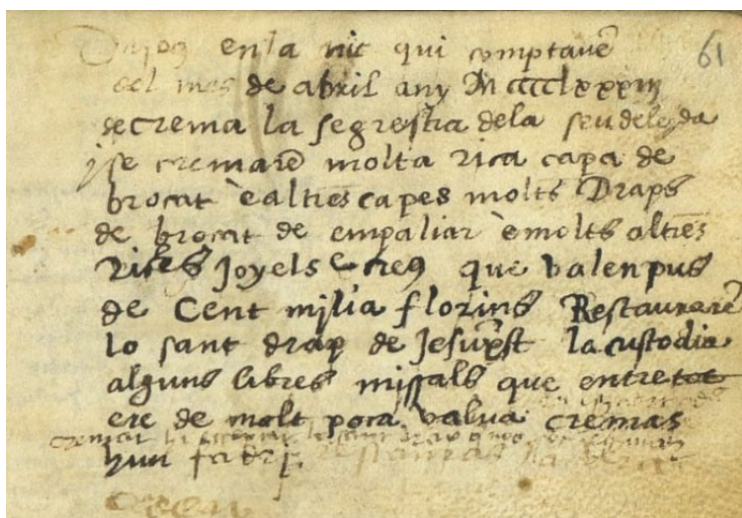 Dijous en la nit qui comptavē 61
del mes de abril any Mcccclxxxiij
secrema la segrestia dela seu deleyda
y se cremarē molta rica capa de
brocat e altres capes molts Draps
de brocat de empaliar e molts altres
richs Joyels e creg que valen pus
de Cent mjlia florins Restaurarē
lo sant drap de Jesuxpst la custodia
alguns libres missals que entre tot
ere de molt poca valua cremas
hun fadrj